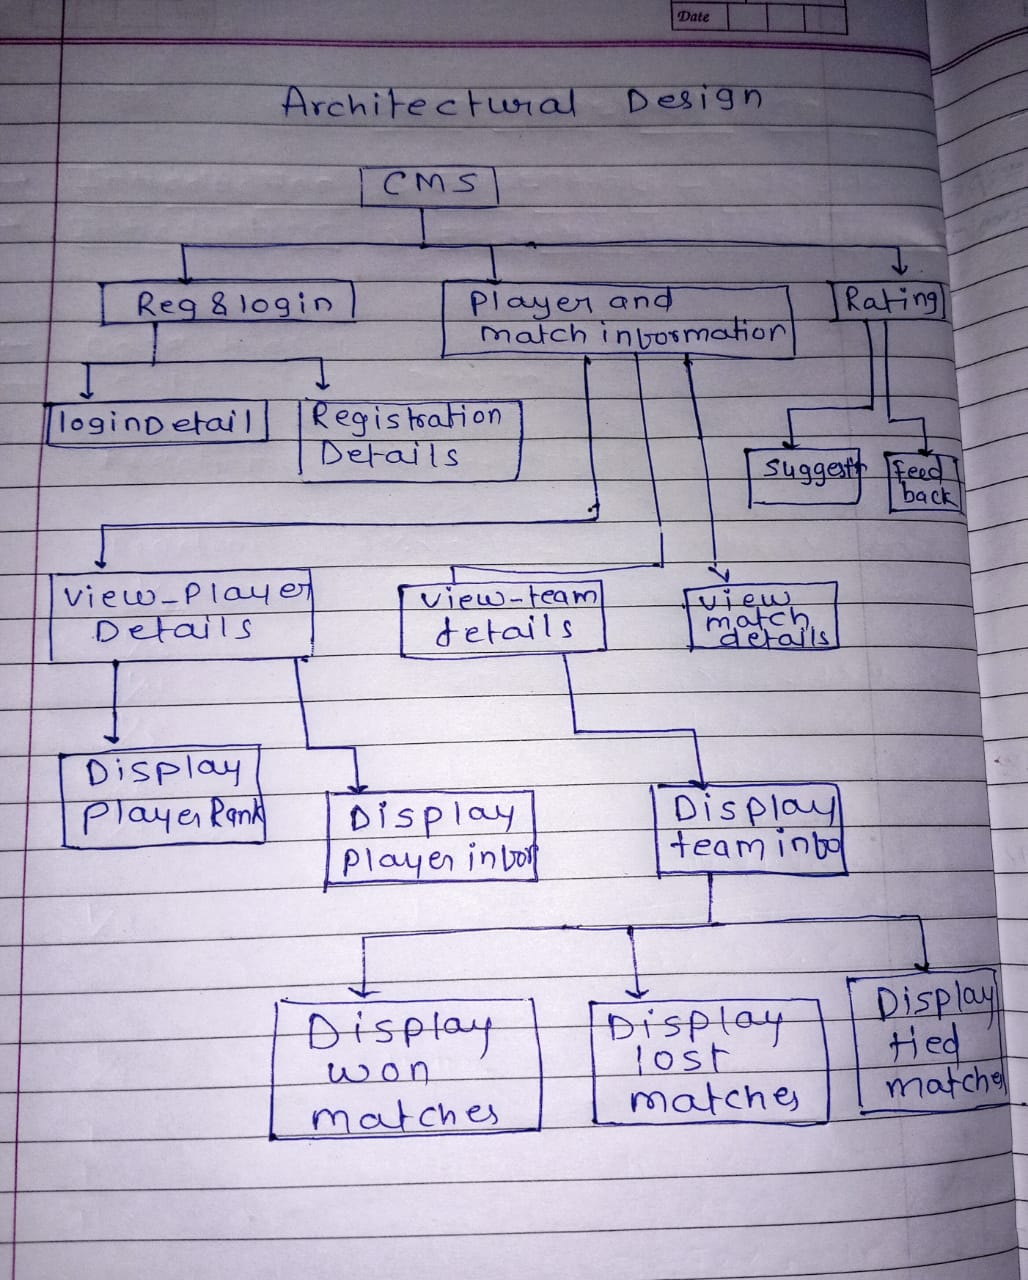 Date
Architectural Design
CMS
Reg & login
Player and
match information
Rating
loginDetail
Registration
Details
suggestn
feed
back
view-Player
Details
view-team
details
view
match
details
Display
Player Rank
Display
player infor
Display
team info
Display
won
matches
Display
lost
matches
Display
tied
matches